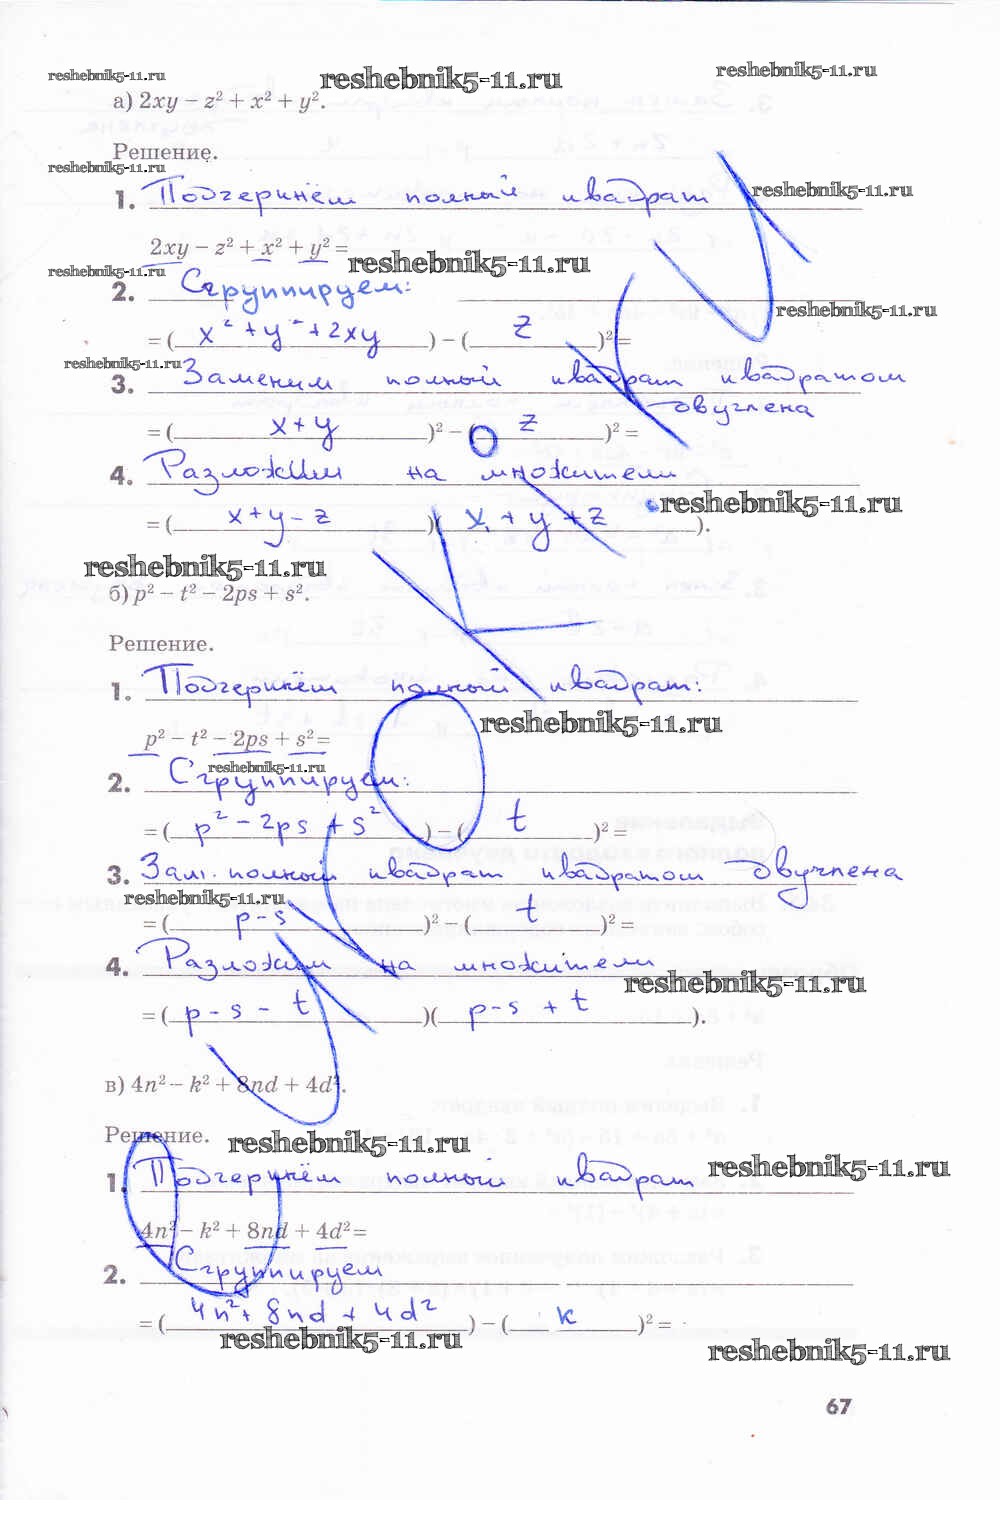 reshebnik5-11.ru reshebnik5-11.ru reshebnik5-11.ru
а) 2xy − z² + x² + y².
Решение.
reshebnik5-11.ru
1. Подчеркнём полный квадрат
reshebnik5-11.ru
2xy − z² + x² + y² =
reshebnik5-11.ru
reshebnik5-11.ru
2. Сгруппируем:
reshebnik5-11.ru
= (x² + y² + 2xy) − (z)² =
reshebnik5-11.ru
3. Заменим полный квадрат квадратом
двучлена
= (x + y)² − (z)² =
4. Разложим на множители
reshebnik5-11.ru
= (x + y − z)(x + y + z).
reshebnik5-11.ru
б) p² − t² − 2ps + s².
Решение.
1. Подчеркнём полный квадрат:
reshebnik5-11.ru
p² − t² − 2ps + s² =
reshebnik5-11.ru
2. Сгруппируем:
= (p² − 2ps + s²) − (t)² =
3. Зам. полный квадрат квадратом двучлена
reshebnik5-11.ru
= (p − s)² − (t)² =
4. Разложим на множители
reshebnik5-11.ru
= (p − s − t)(p − s + t).
в) 4n² − k² + 8nd + 4d².
Решение.
reshebnik5-11.ru
reshebnik5-11.ru
1. Подчеркнём полный квадрат
4n² − k² + 8nd + 4d² =
2. Сгруппируем
= (4n² + 8nd + 4d²) − (k)² =
reshebnik5-11.ru
reshebnik5-11.ru
67